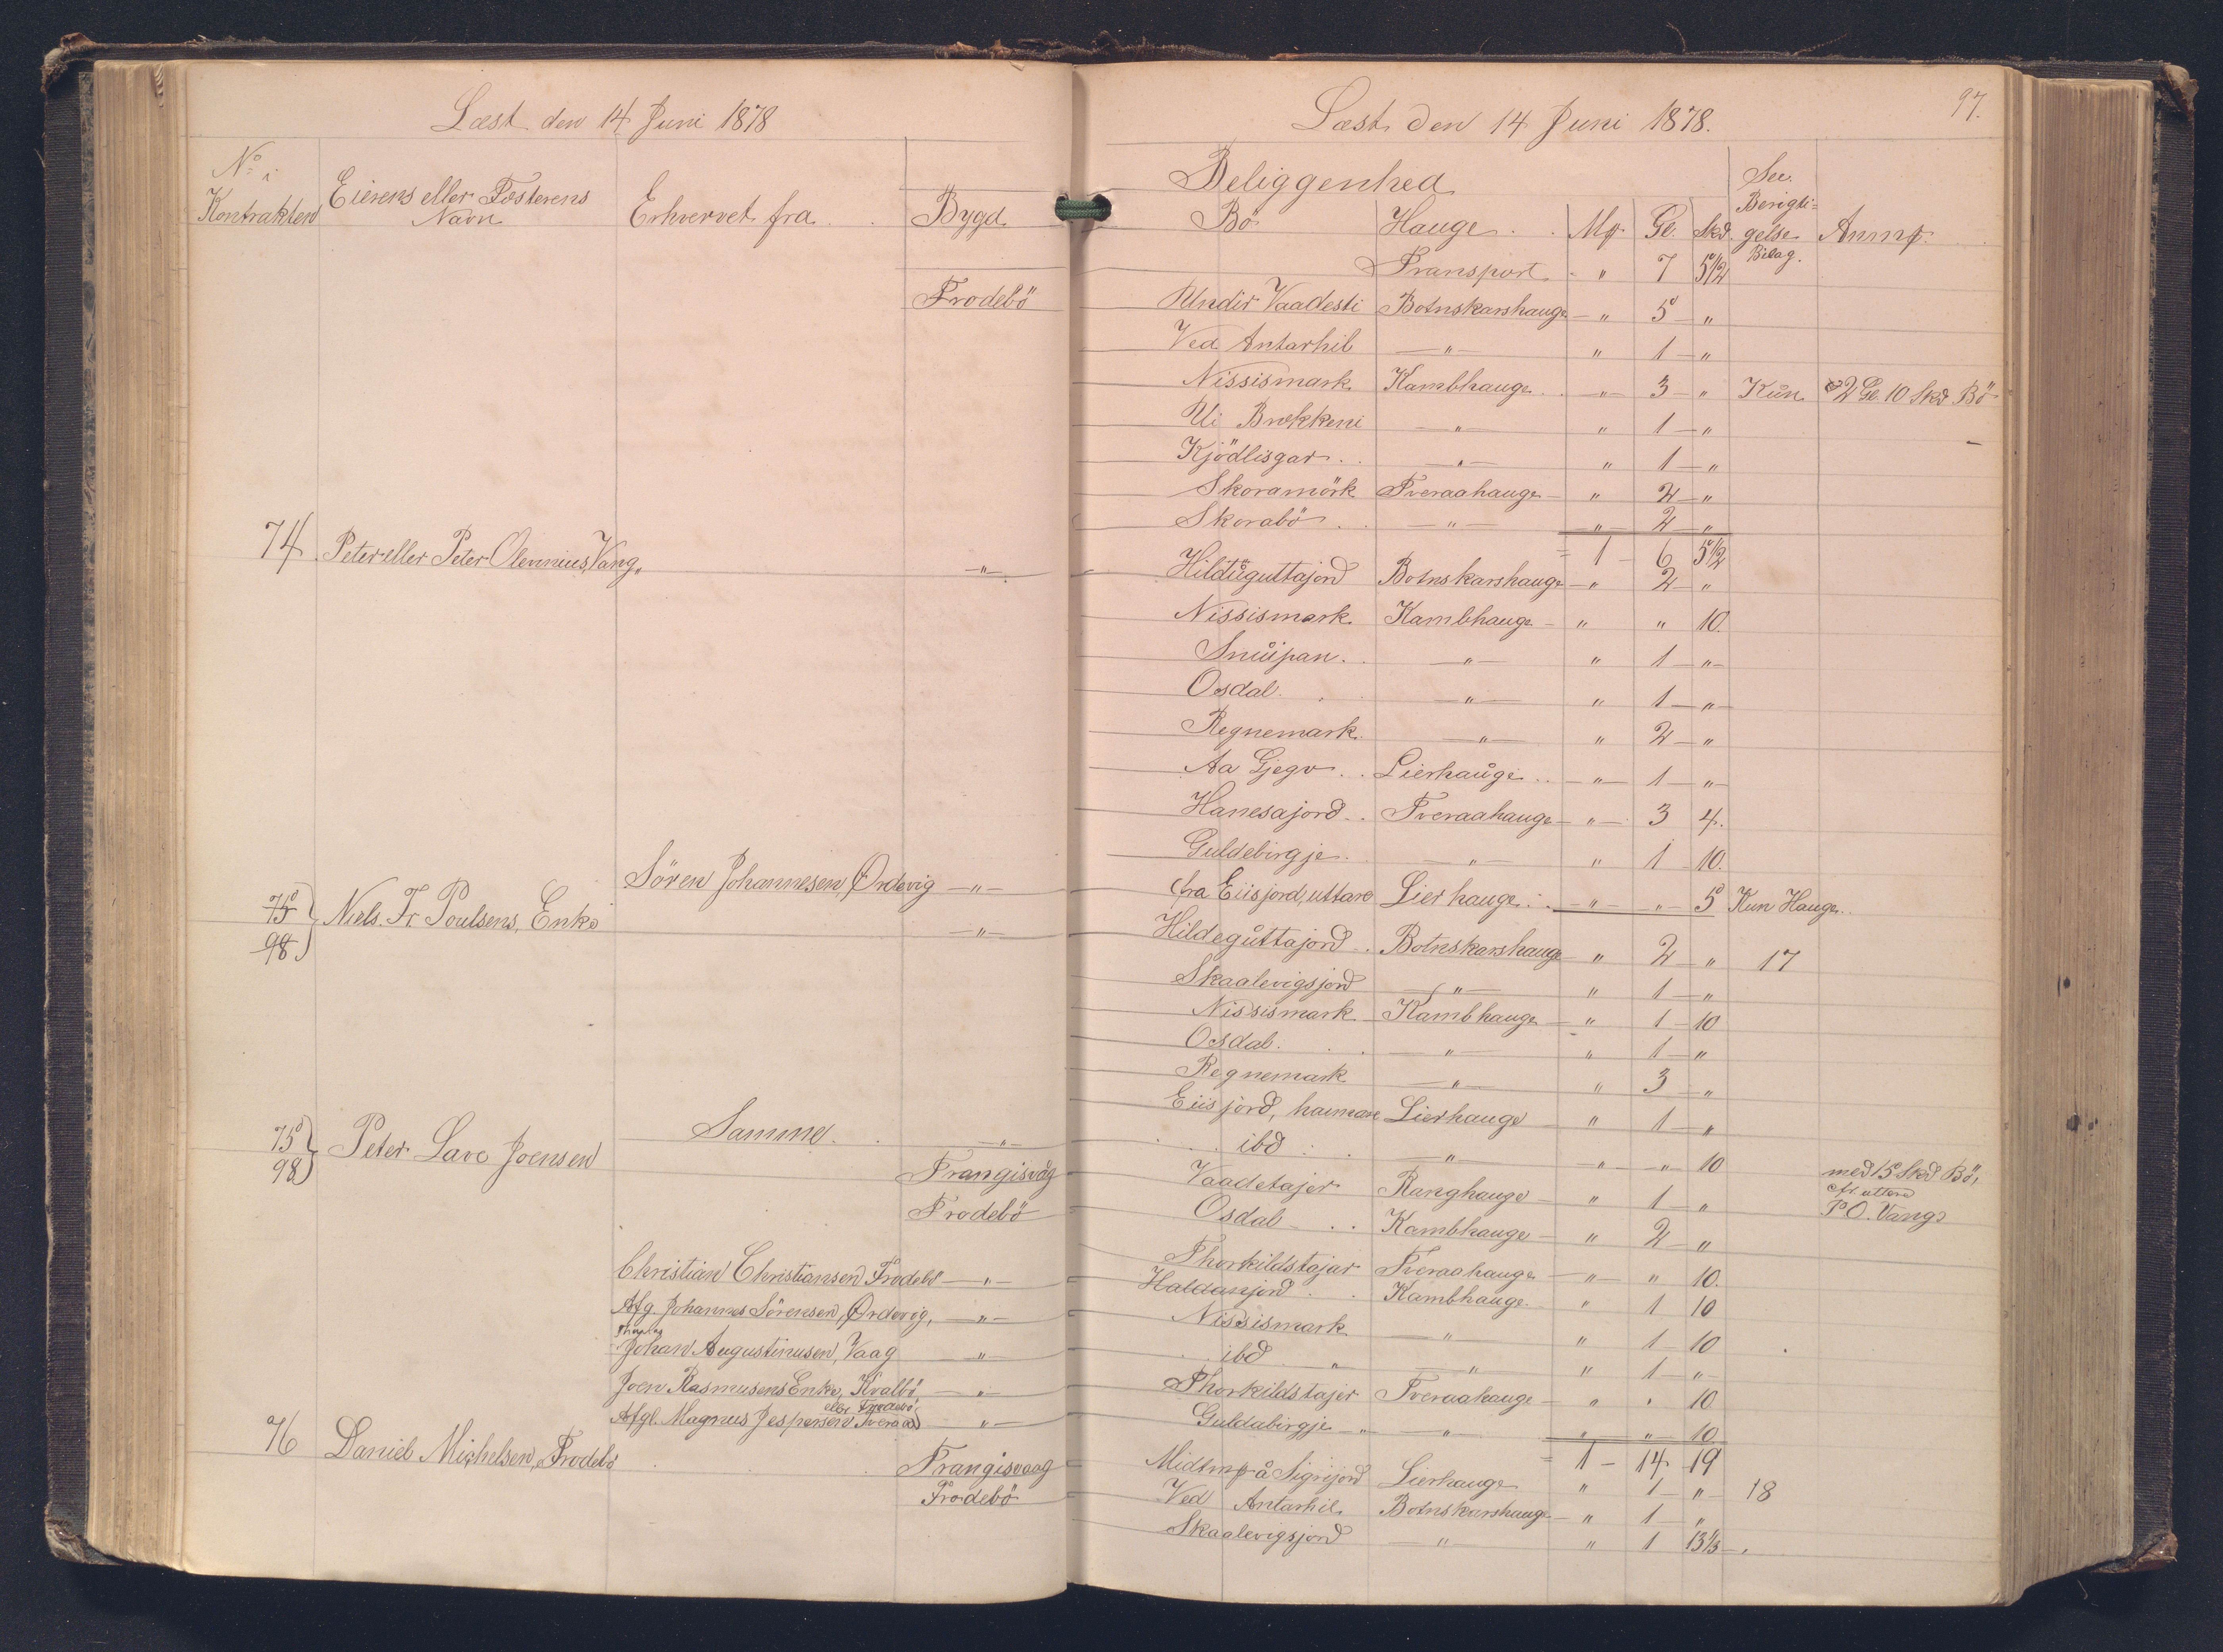 Læst den 14 Juni 1878
No i Kontrakten | Eierens eller Fæsterens Navn | Erhvervet fra | Bygd
Frodebö
74 Peter eller Peter Olevinius Vang, — " —
Sören Johannesen, Ördevig — " —
75 } Niels. Fr. Poulsens, Enke
98 } — " —
75 } Peter Lave Joensen Samme — " —
98 } Frangisvåg
Frodebö
Christian Christiansen Frodebö — " —
Afg. Johannes Sörensen, Ördevig, — " —
Johan Augustinusen, Vaag — " —
Joen Rasmusens Enke, Kvalbö, — " —
eller Frodebö
Afgl. Magnus Jespersen Tveraa — " —
76 Daniel Michelsen, Frodebö Frangisvaag
Frodebö
97.
Læst den 14 Juni 1878.
Beliggenhed
Bö | Hauge | Mp | Gl. | Skd. | See. Berigti= gelse Bilag. | Anmp.
Transport " 7 5 1/2
Undir Vaadesti Botnskarshauge " 5 "
Ved Antarhil — " — " 1 "
Nissismark Kambhauge " 3 " Kun 2 Gl. 10 Skd Bö
Ui Brekkeni — " — " 1 "
Kjödlisgar — " — " 1 "
Skoramörk Tveraahauge " 2 "
Skorabö — " — " 2 "
= 1 - 6 5 1/2
Hilduguttajord Botnskarshauge " 2 "
Nissismark Kambhauge " " 10.
Snuipan — " — " 1 "
Osdal — " — " 1 "
Regnemark — " — " 2 "
Aa Gjegv Lierhauge " 1 "
Hanesajord Tveraahauge " 3 4.
Guldebirgje — " — " 1 10.
fra Eiisjord, uttare Lierhauge " " 5 Kun Hauge
Hildeguttajord Botnskarshauge " 2 " 17
Skaalevigsjord — " — " 1 "
Nissismark Kambhauge " 1 10
Osdal — " — " 1 "
Regnemark — " — " 3 "
Eiisjord, haimare Lierhauge " 1 "
ibd — " — " " 10
med 15 Skd Bö,
af uttere
P.O. Vangs
Vaadetajer Ranghauge " 1 "
Osdal Kambhauge " 2 "
Thorkildstajar Tveraahauge " " 10.
Haldansjord Kambhauge " 1 10
Nissismark — " — " 1 10
ibd " — " — " 1 "
Thorkildstajer Tveraahauge " " 10
Guldabirgje — " — " " 10
= 1 - 14 19
Midtmp å Sigrijord Lierhauge " 1 " 18
Ved Antarhil Botnskarshauge " 1 "
Skaalevigsjord — " — " 1 13 1/3